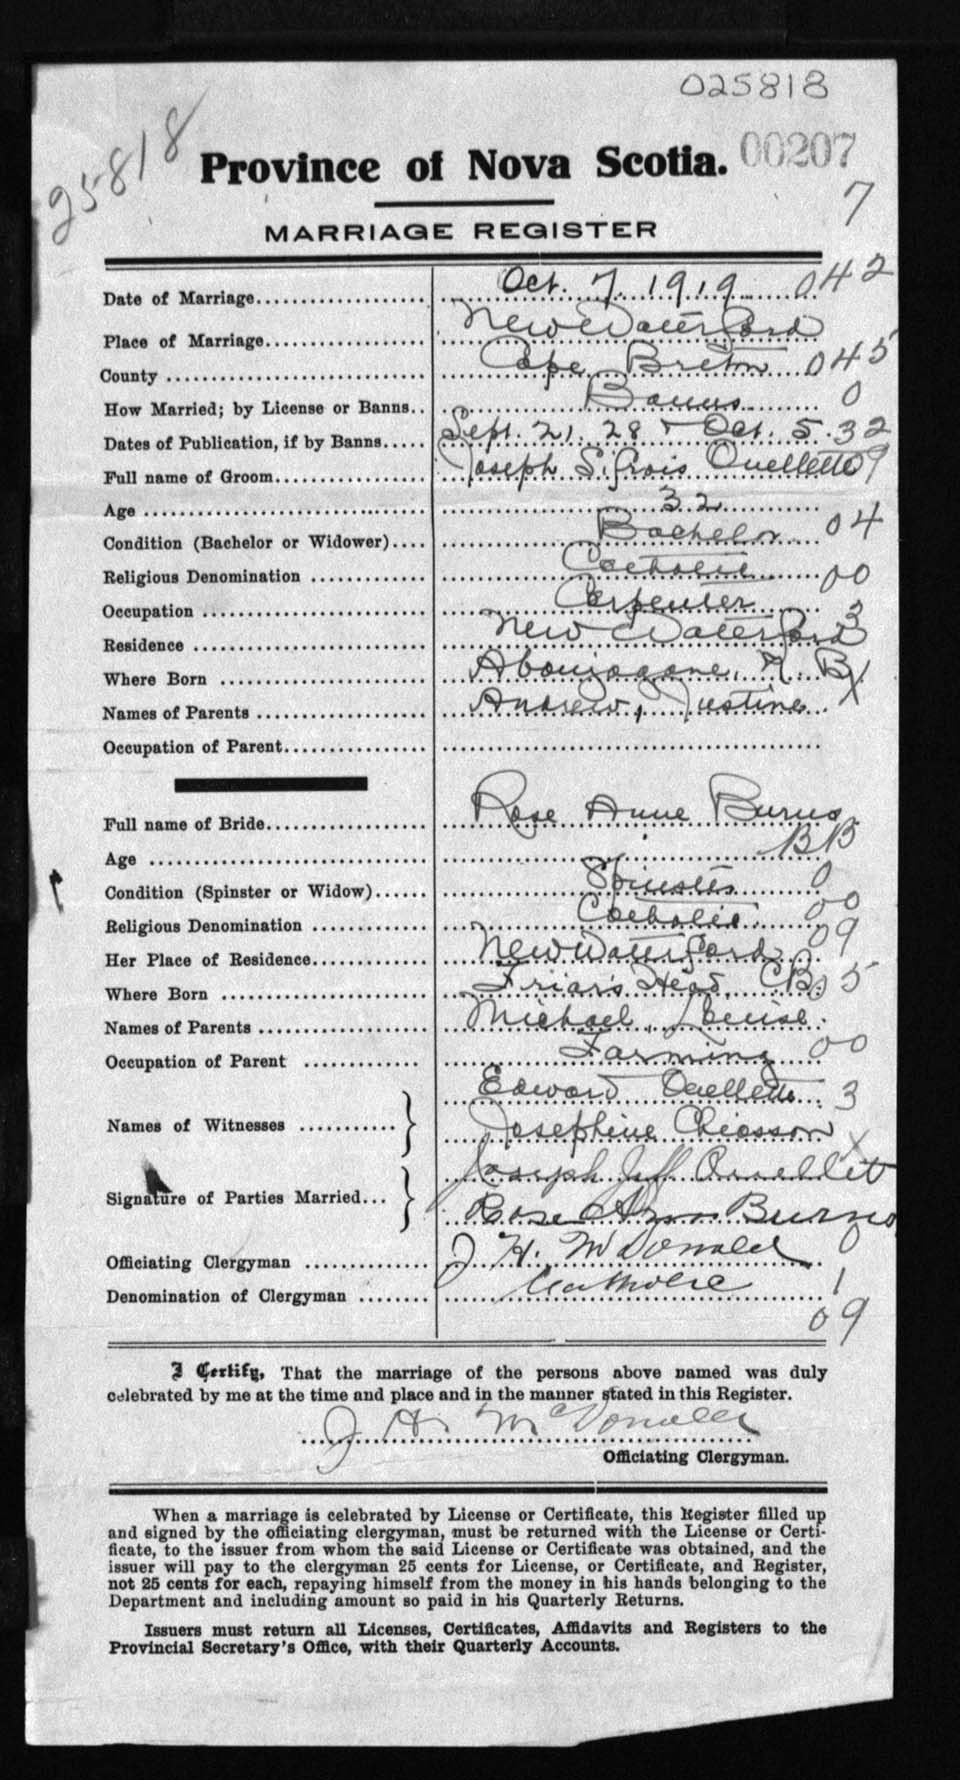 025818
25818
Province of Nova Scotia. 00207
7
MARRIAGE REGISTER
Date of Marriage Oct. 7, 1919 042
Place of Marriage New Waterford
County Cape Breton 045
How Married; by License or Banns.. Banns 0
Dates of Publication, if by Banns..... Sept. 21, 28 & Oct. 5. 32
Full name of Groom Joseph Sifrois Ouellette 9
Age 32
Condition (Bachelor or Widower).... Bachelor 04
Religious Denomination Catholic 00
Occupation Carpenter 3
Residence New Waterford
Where Born Aboujagane, N. B. X
Names of Parents Andrew, Justine
Occupation of Parent
Full name of Bride Rose Anne Burns
Age BB
Condition (Spinster or Widow)...... Spinster 0
Religious Denomination Catholic 00
Her Place of Residence New Waterford 09
Where Born Friar's Head, CB. 5
Names of Parents Michael, Louise.
Occupation of Parent Farming 00
Names of Witnesses Edward Ouellette 3
Josephine Chiasson X
Signature of Parties Married... Joseph Jiff Ouellet
Rose Ann Burns
Officiating Clergyman J. H. McDonald 0
Denomination of Clergyman Catholic 1
09
I Certify, That the marriage of the persons above named was duly
celebrated by me at the time and place and in the manner stated in this Register.
J H. McDonald
Officiating Clergyman.
When a marriage is celebrated by License or Certificate, this Register filled up
and signed by the officiating clergyman, must be returned with the License or Certi-
ficate, to the issuer from whom the said License or Certificate was obtained, and the
issuer will pay to the clergyman 25 cents for License, or Certificate, and Register,
not 25 cents for each, repaying himself from the money in his hands belonging to the
Department and including amount so paid in his Quarterly Returns.
Issuers must return all Licenses, Certificates, Affidavits and Registers to the
Provincial Secretary's Office, with their Quarterly Accounts.